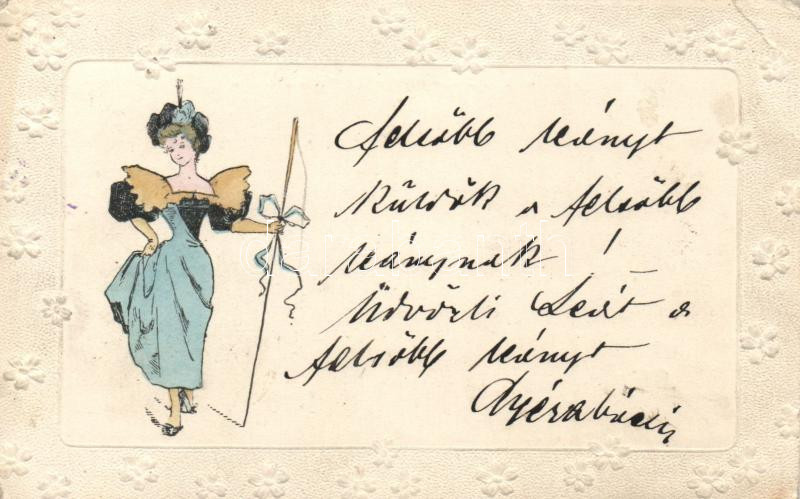 felsőbb leányt
küldök a felsőbb
leánynak! –
Üdvözli Leát a
felsőbb leányt